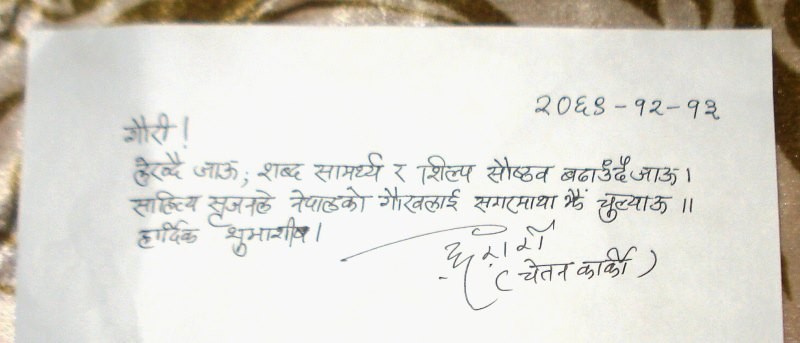 २०६९-१२-१३
गौरी!
लेख्दै जाऊ; शब्द सामर्थ्य र शिल्प सौष्ठव बढाउँदै जाऊ।
साहित्य सृजनले नेपालको गौरवलाई सगरमाथा झैं चुल्याऊ ॥
हार्दिक शुभाशीष।
(चेतन कार्की)